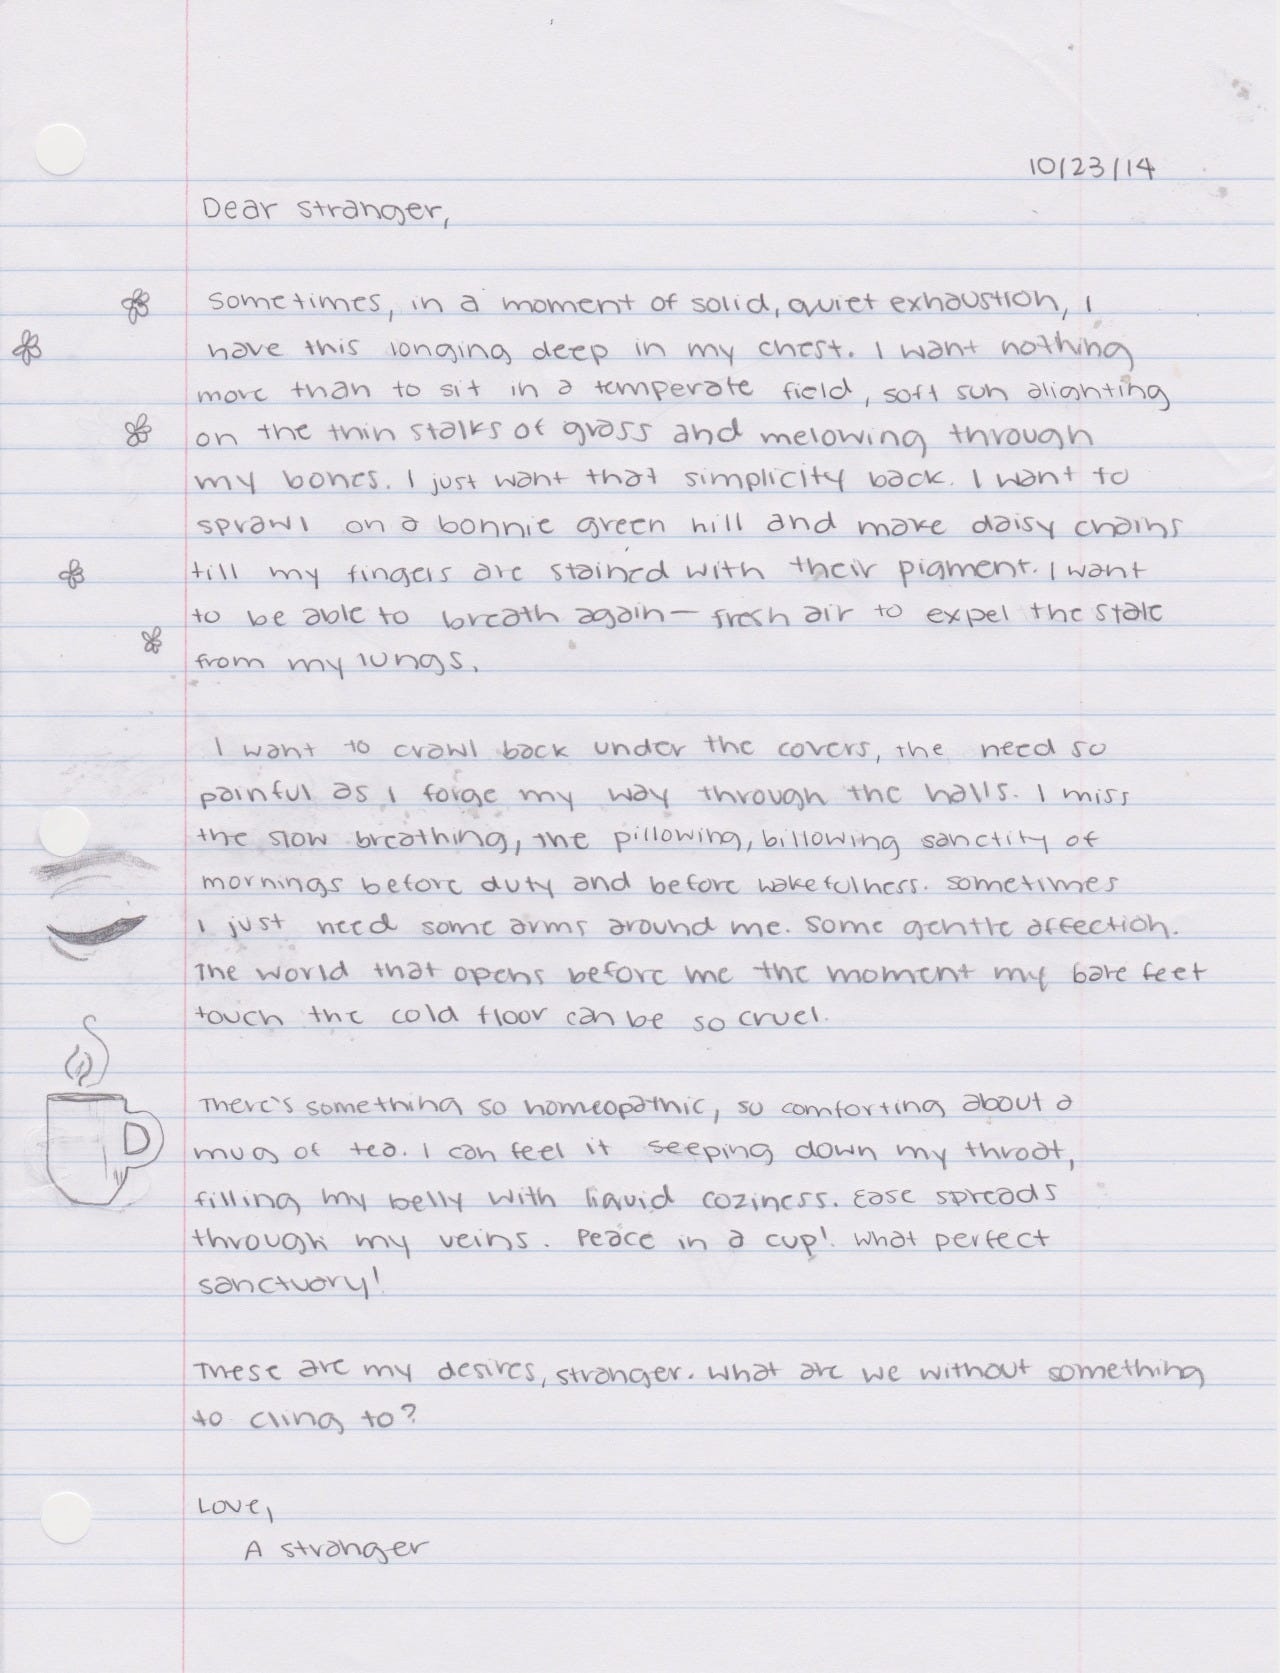 10/23/14
Dear stranger,
Sometimes, in a moment of solid, quiet exhaustion, I
have this longing deep in my chest. I want nothing
more than to sit in a temperate field, soft sun alighting
on the thin stalks of grass and melowing through
my bones. I just want that simplicity back. I want to
sprawl on a bonnie green hill and make daisy chains
till my fingers are stained with their pigment. I want
to be able to breath again — fresh air to expel the stale
from my lungs.
I want to crawl back under the covers, the need so
painful as I forge my way through the halls. I miss
the slow breathing, the pillowing, billowing sanctity of
mornings before duty and before wakefulness. Sometimes
I just need some arms around me. Some gentle affection.
The world that opens before me the moment my bare feet
touch the cold floor can be so cruel.
There's something so homeopathic, so comforting about a
mug of tea. I can feel it seeping down my throat,
filling my belly with liquid coziness. Ease spreads
through my veins. Peace in a cup! What perfect
sanctuary!
These are my desires, stranger. What are we without something
to cling to?
Love,
A stranger